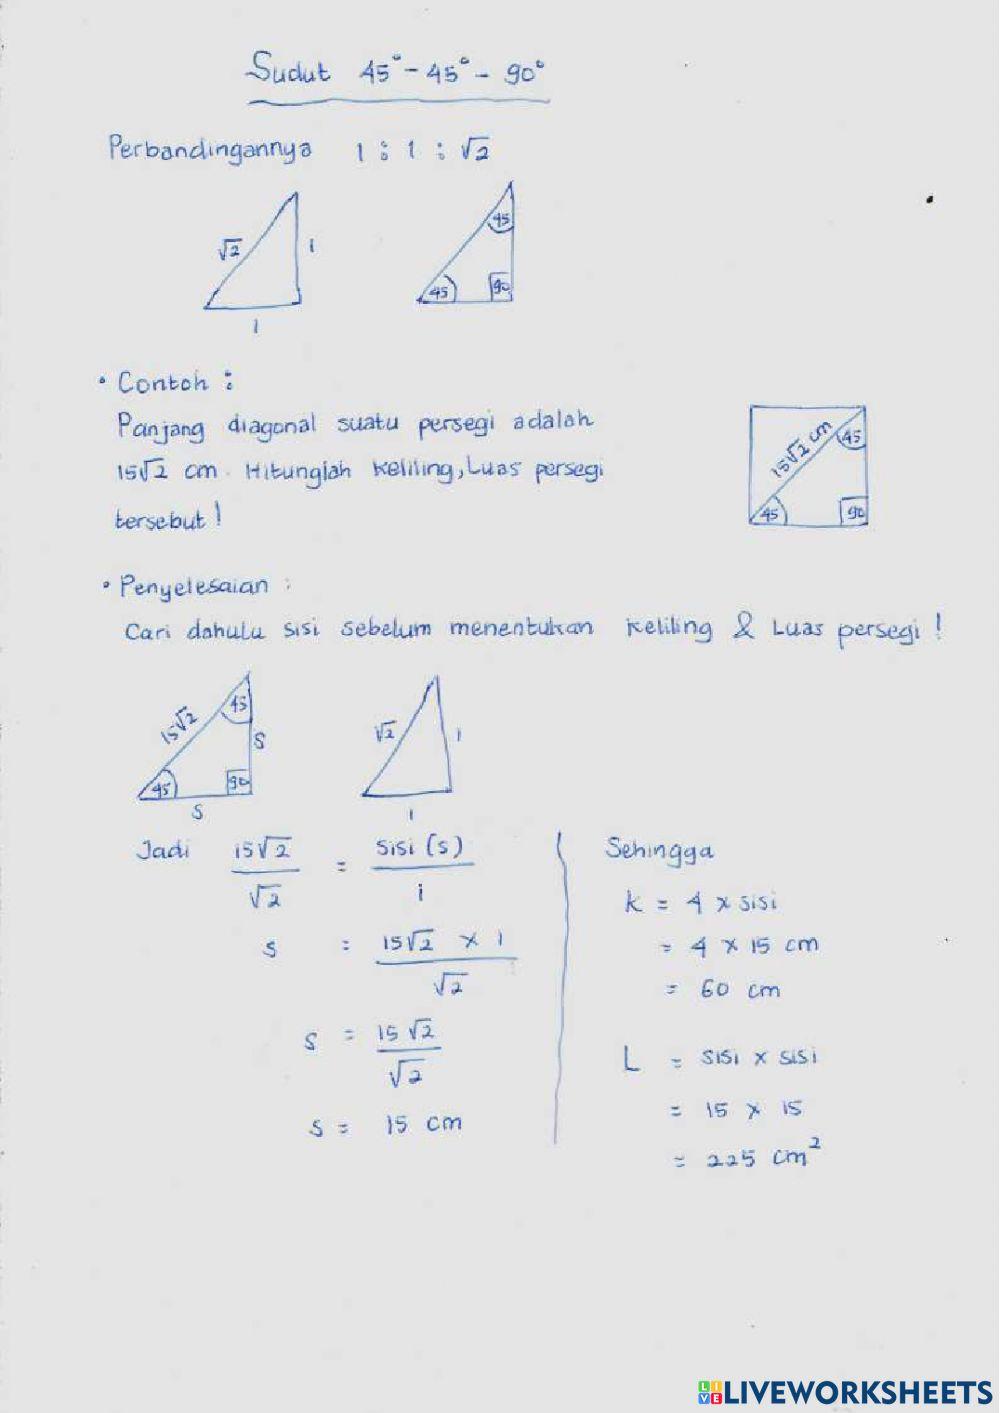 Sudut 45° - 45° - 90°
Perbandingannya 1 : 1 : √2
√2 1 1
45 45 90
• Contoh :
Panjang diagonal suatu persegi adalah
15√2 cm. Hitunglah Keliling, Luas persegi
tersebut!
15√2 cm 45 45 90
• Penyelesaian :
Cari dahulu sisi sebelum menentukan keliling & Luas persegi !
15√2 45 S 45 90 S
√2 1 1
Jadi 15√2 / √2 = Sisi (s) / 1
s = 15√2 x 1 / √2
s = 15√2 / √2
s = 15 cm
Sehingga
K = 4 x sisi
= 4 x 15 cm
= 60 cm
L = sisi x sisi
= 15 x 15
= 225 cm²
LIVE LIVEWORKSHEETS